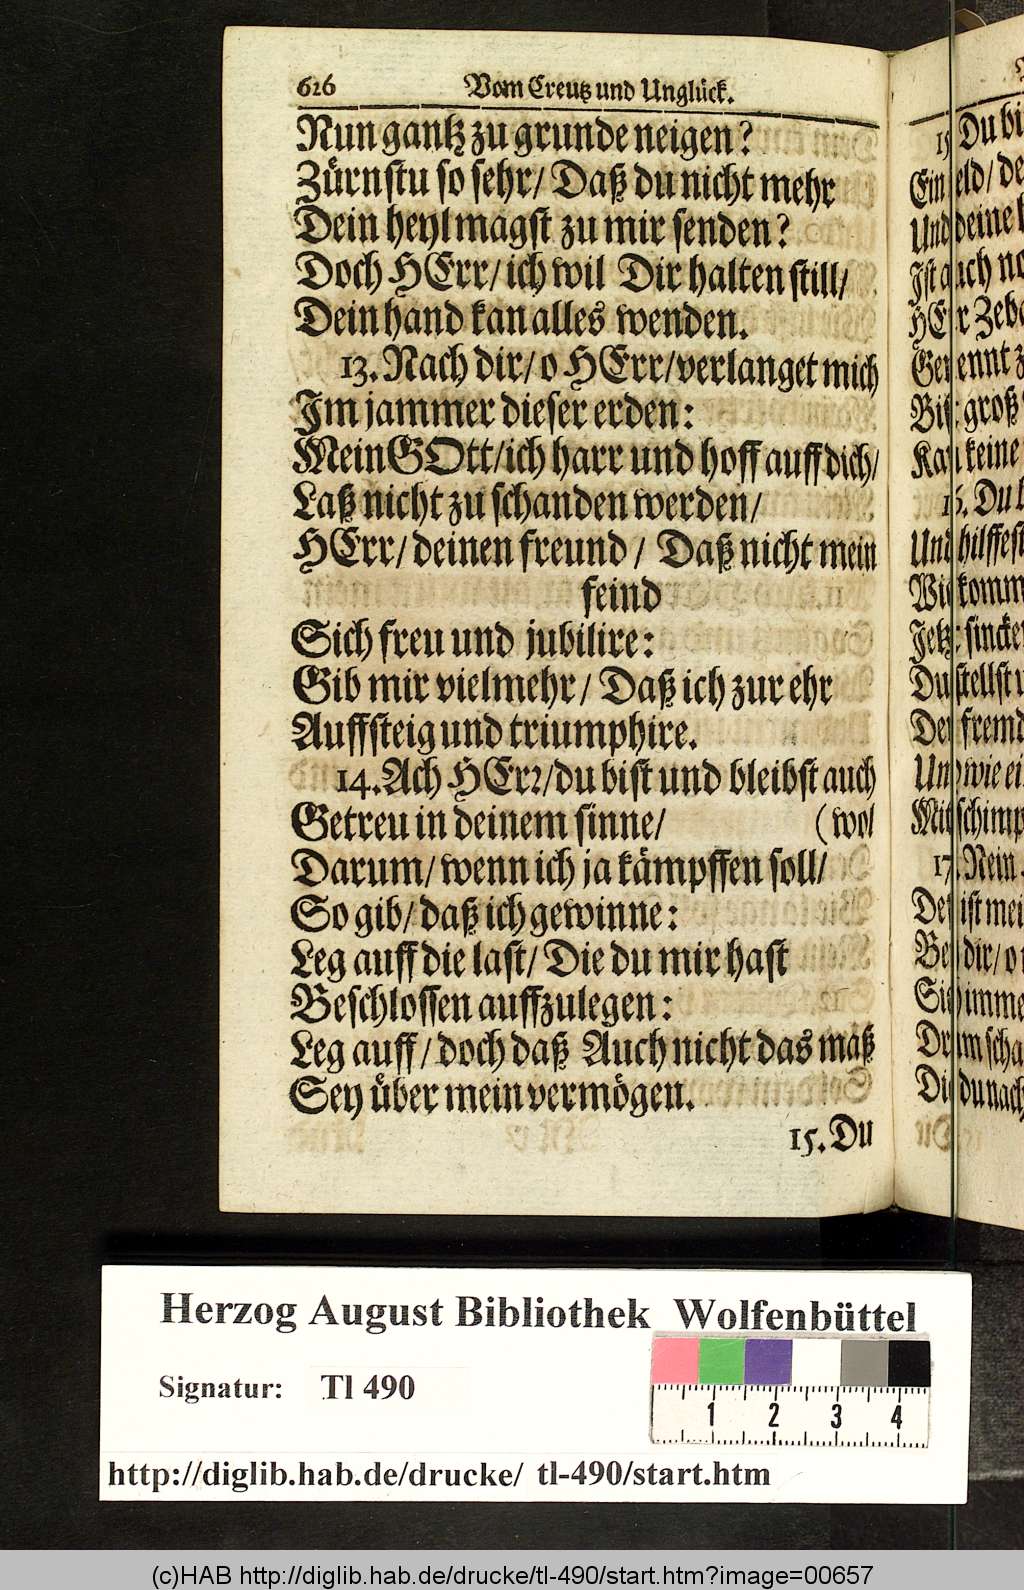 626 Vom Creutz und Unglück.
Nun gantz zu grunde neigen?
Zürnstu so sehr/ Daß du nicht mehr
Dein heyl magst zu mir senden?
Doch HErr/ ich wil Dir halten still/
Dein hand kan alles wenden.
13. Nach dir/ o HErr/ verlanget mich
Im jammer dieser erden:
Mein GOtt/ ich harr und hoff auff dich/
Laß nicht zu schanden werden/
HErr/ deinen freund / Daß nicht mein
feind
Sich freu und jubilire:
Gib mir vielmehr/ Daß ich zur ehr
Auffsteig und triumphire.
14. Ach HErr/ du bist und bleibst auch
Getreu in deinem sinne/ (wol
Darum/ wenn ich ja kämpffen soll/
So gib/ daß ich gewinne:
Leg auff die last/ Die du mir hast
Beschlossen auffzulegen:
Leg auff/ doch daß Auch nicht das maß
Sey über mein vermögen.
15. Du
Du
Und deine
HErr
groß
keine
16. Du
Und hilffest
17. Nein
Herzog August Bibliothek Wolfenbüttel
Signatur: Tl 490
1 2 3 4
http://diglib.hab.de/drucke/ tl-490/start.htm
(c)HAB http://diglib.hab.de/drucke/tl-490/start.htm?image=00657